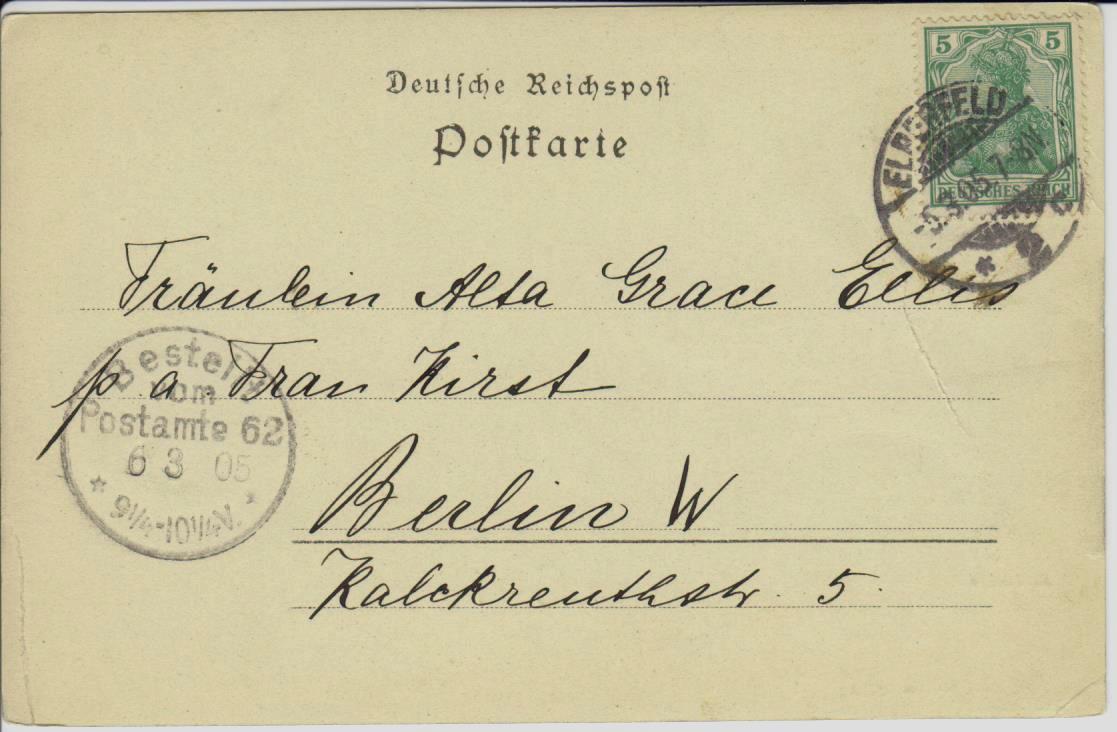 Deutsche Reichspost
Postkarte
5 5
DEUTSCHES REICH
ELBERFELD
-5.3.05.7-8N.
* 2 c
Fräulein Alta Grace Ellis
p a. Frau Kirst
Berlin W
Kalckreuthstr. 5.
Bestellt
vom
Postamte 62
6 3 05
* 9¼-10¼V. *